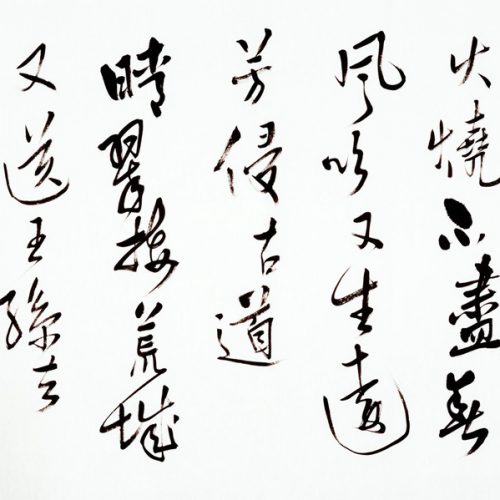 火燒不盡春
風吹又生遠
芳侵古道
晴翠接荒城
又送王孫去